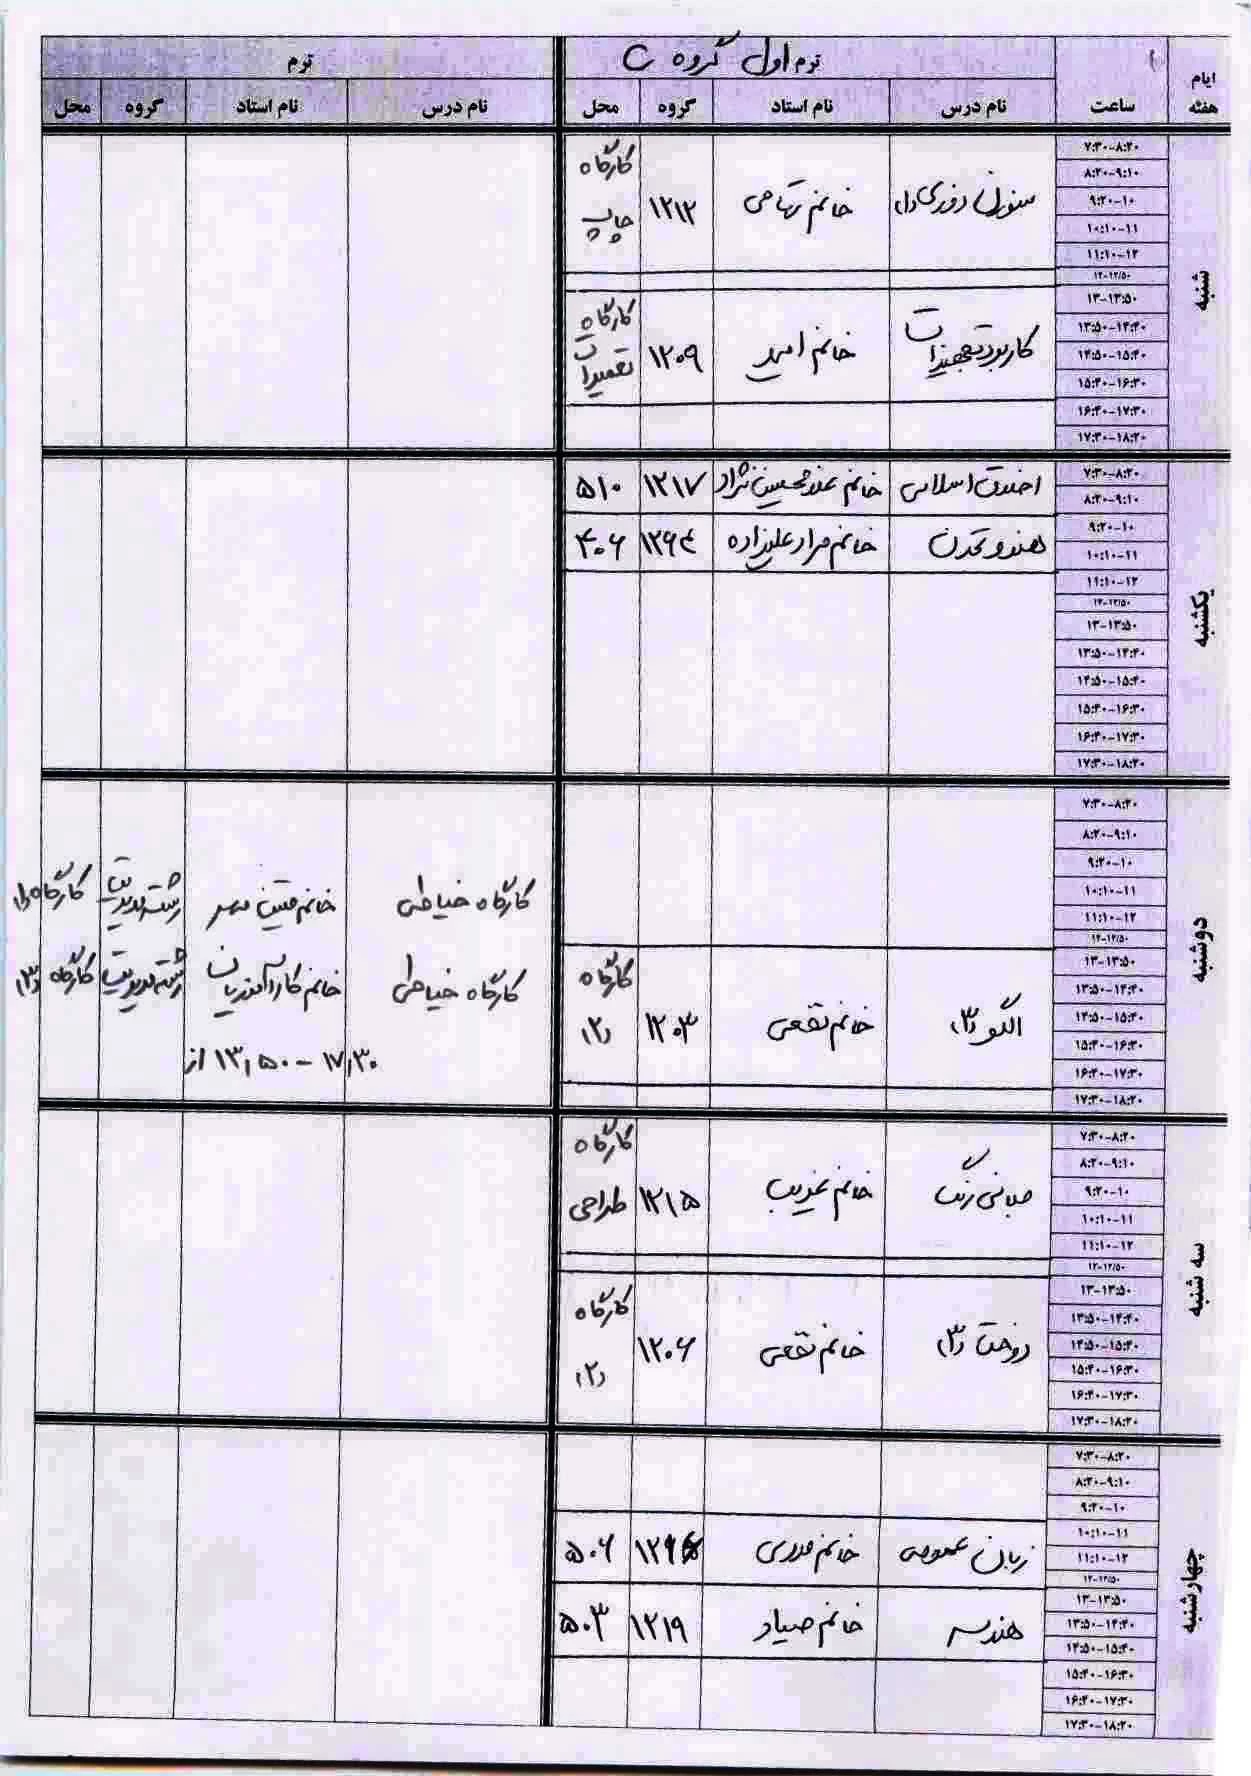 ایام هفته
ساعت
ترم اول گروه ت
نام درس
نام استاد
گروه
محل
ترم
نام درس
نام استاد
گروه
محل
شنبه
۷:۳۰-۸:۲۰
۸:۲۰-۹:۱۰
۹:۲۰-۱۰
۱۰:۱۰-۱۱
۱۱:۱۰-۱۲
۱۲-۱۲/۵۰
۱۳-۱۳:۵۰
۱۳:۵۰-۱۴:۴۰
۱۴:۵۰-۱۵:۴۰
۱۵:۴۰-۱۶:۳۰
۱۶:۴۰-۱۷:۳۰
۱۷:۳۰-۱۸:۲۰
خانم تهامی
۱۲۱۲
کارگاه
چاپ
کاربرد تجهیزات
خانم امید
۱۲۰۹
کارگاه
تعمیرات
یکشنبه
۷:۳۰-۸:۲۰
۸:۲۰-۹:۱۰
۹:۲۰-۱۰
۱۰:۱۰-۱۱
۱۱:۱۰-۱۲
۱۲-۱۲/۵۰
۱۳-۱۳:۵۰
۱۳:۵۰-۱۴:۴۰
۱۴:۵۰-۱۵:۴۰
۱۵:۴۰-۱۶:۳۰
۱۶:۴۰-۱۷:۳۰
۱۷:۳۰-۱۸:۲۰
اخلاق اسلامی
خانم
۱۲۱۷
۵۱۰
هنر و تمدن
خانم مراد علیزاده
۱۲۶۴
۴۰۶
دوشنبه
۷:۳۰-۸:۲۰
۸:۲۰-۹:۱۰
۹:۲۰-۱۰
۱۰:۱۰-۱۱
۱۱:۱۰-۱۲
۱۲-۱۲/۵۰
۱۳-۱۳:۵۰
۱۳:۵۰-۱۴:۴۰
۱۴:۵۰-۱۵:۴۰
۱۵:۴۰-۱۶:۳۰
۱۶:۴۰-۱۷:۳۰
۱۷:۳۰-۱۸:۲۰
الگو (۳)
خانم نخعی
۱۲۰۳
کارگاه
(۲)
کارگاه خیاطی
خانم متین مهر
رشته مدیریت
کارگاه (۱)
کارگاه خیاطی
خانم
رشته مدیریت
کارگاه (۳)
از ۱۳٫۵۰ - ۱۷٫۳۰
سه شنبه
۷:۳۰-۸:۲۰
۸:۲۰-۹:۱۰
۹:۲۰-۱۰
۱۰:۱۰-۱۱
۱۱:۱۰-۱۲
۱۲-۱۲/۵۰
۱۳-۱۳:۵۰
۱۳:۵۰-۱۴:۴۰
۱۴:۵۰-۱۵:۴۰
۱۵:۴۰-۱۶:۳۰
۱۶:۴۰-۱۷:۳۰
۱۷:۳۰-۱۸:۲۰
مبانی رنگ
خانم
۱۲۱۵
کارگاه
طراحی
دوخت (۳)
خانم نخعی
۱۲۰۶
کارگاه
(۲)
چهارشنبه
۷:۳۰-۸:۲۰
۸:۲۰-۹:۱۰
۹:۲۰-۱۰
۱۰:۱۰-۱۱
۱۱:۱۰-۱۲
۱۲-۱۲/۵۰
۱۳-۱۳:۵۰
۱۳:۵۰-۱۴:۴۰
۱۴:۵۰-۱۵:۴۰
۱۵:۴۰-۱۶:۳۰
۱۶:۴۰-۱۷:۳۰
۱۷:۳۰-۱۸:۲۰
زبان عمومی
خانم مدری
۵۰۶
هندسه
خانم صیاد
۱۲۱۹
۵۰۳